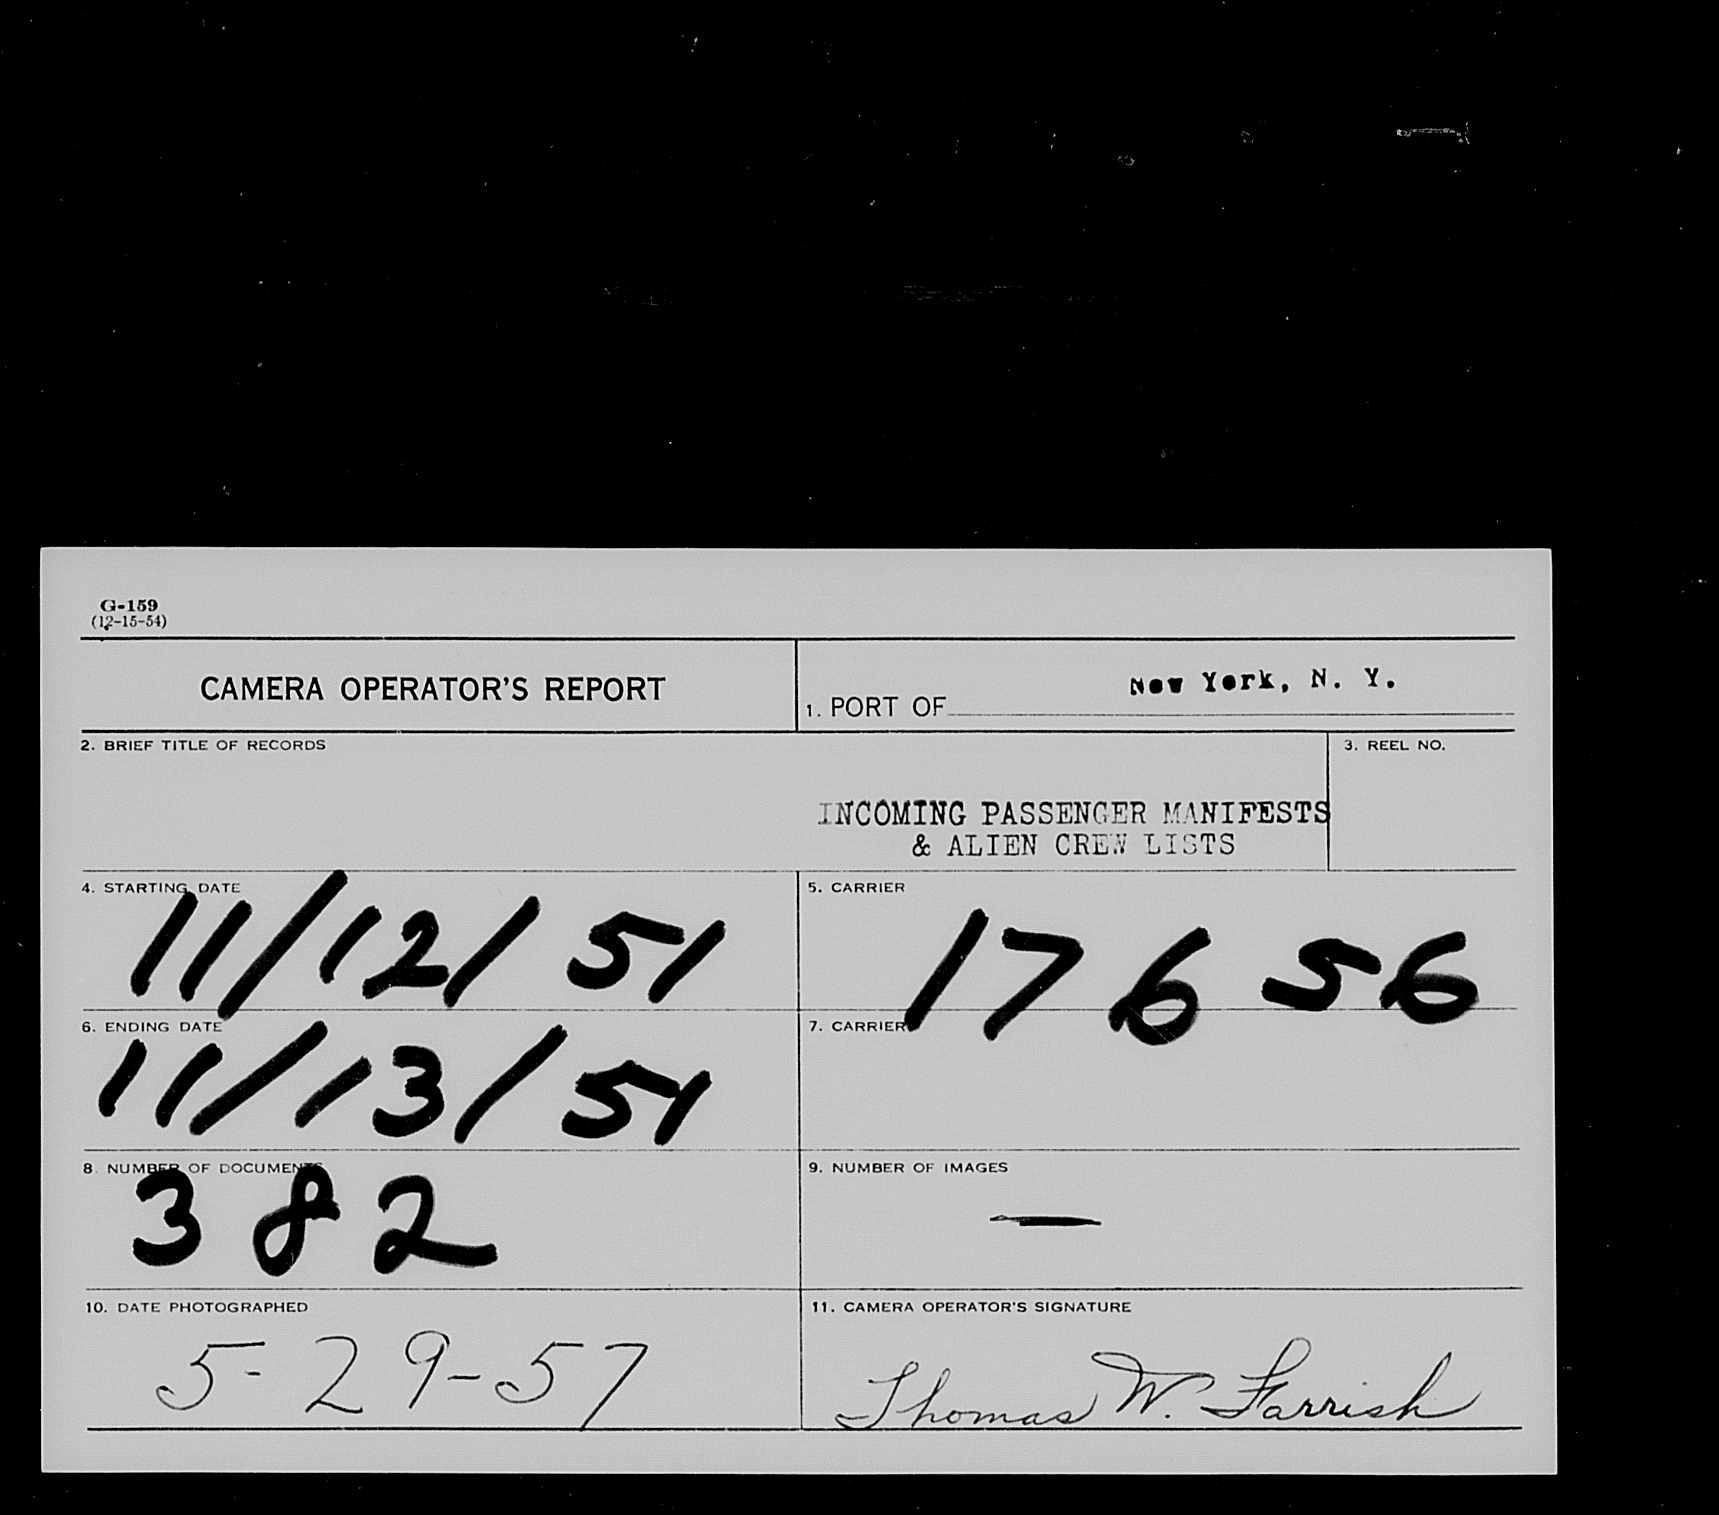 G-159
(12-15-54)
CAMERA OPERATOR'S REPORT
1. PORT OF New York, N. Y.
2. BRIEF TITLE OF RECORDS
INCOMING PASSENGER MANIFESTS
& ALIEN CREW LISTS
3. REEL NO.
4. STARTING DATE
11/12/51
5. CARRIER
17656
6. ENDING DATE
11/13/51
7. CARRIER
8. NUMBER OF DOCUMENTS
382
9. NUMBER OF IMAGES
—
10. DATE PHOTOGRAPHED
5-29-57
11. CAMERA OPERATOR'S SIGNATURE
Thomas W. Farrish